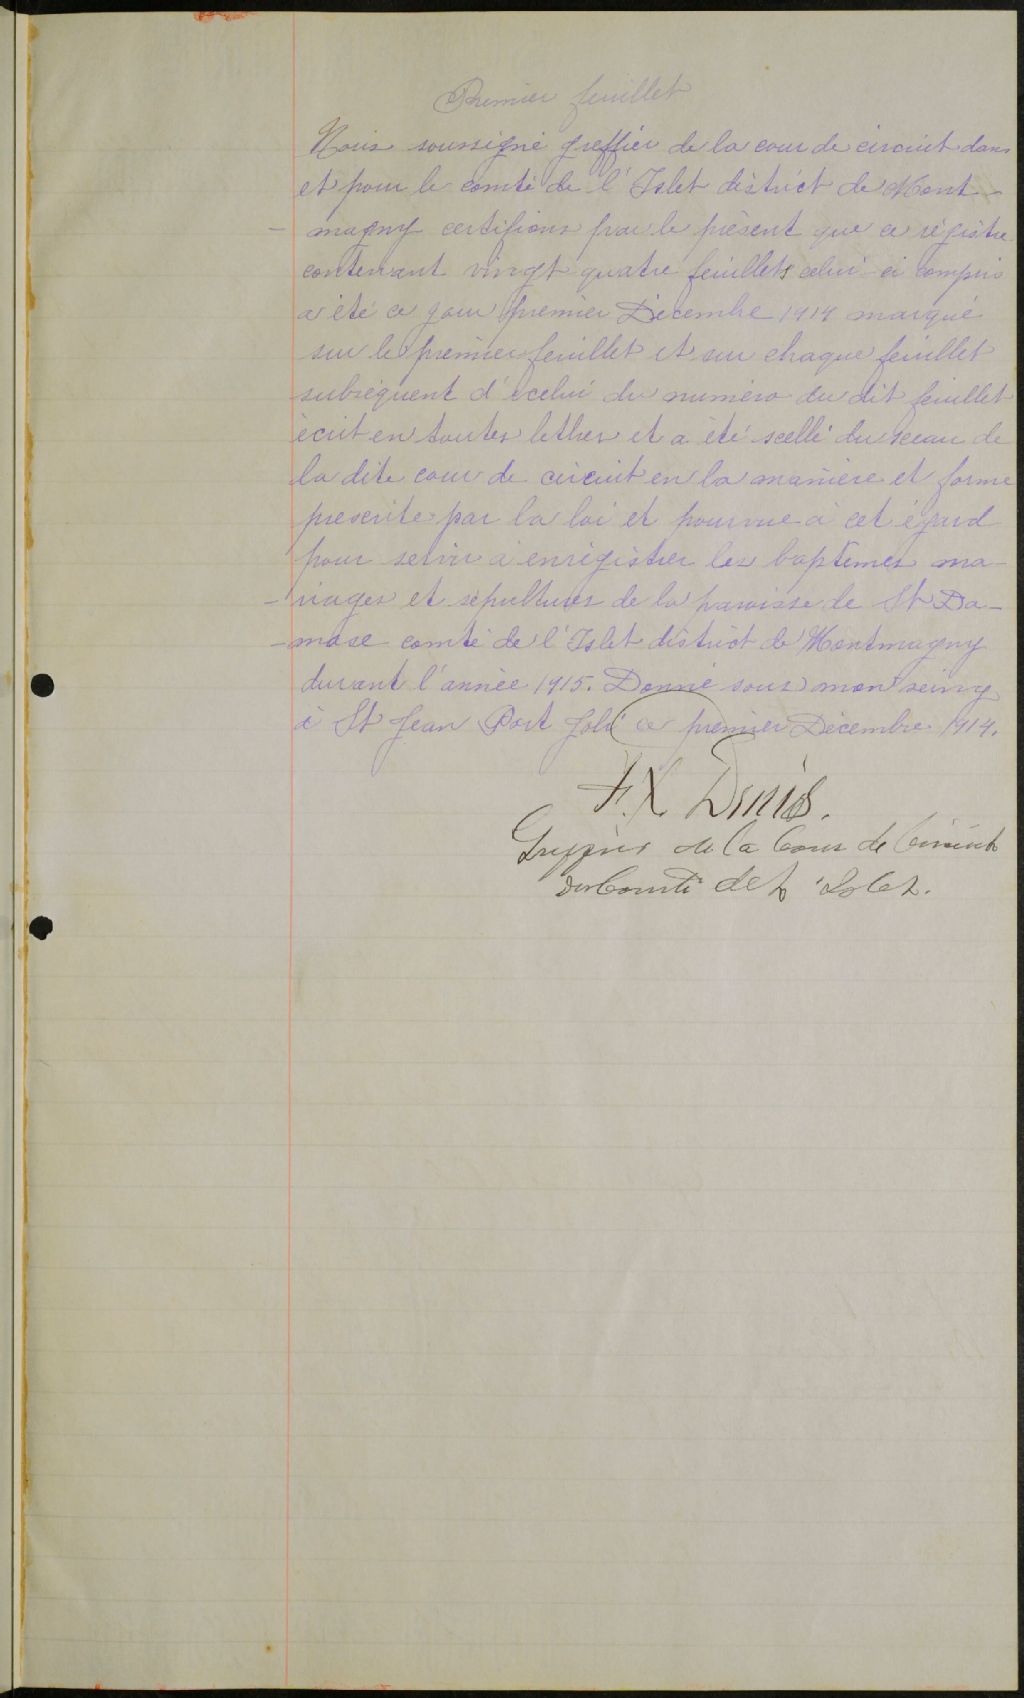 Premier feuillet
Nous soussigné greffier de la cour de circuit dans
et pour le comté de l'Islet district de Mont-
- magny certifions par le présent que ce régistre
contenant vingt quatre feuillets celui-ci compris
a été ce jour premier Décembre 1914 marqué
sur le premier feuillet et sur chaque feuillet
subséquent d'icelui du numéro du dit feuillet
écrit en toutes lettres et a été scellé du sceau de
la dite cour de circuit en la manière et forme
prescrite par la loi et pourvue à cet égard
pour servir à enrégistrer les baptêmes ma-
- riages et sépultures de la paroisse de St Da-
- mase comté de l'Islet district de Montmagny
durant l'année 1915. Donné sous mon seing
à St Jean Port Joli ce premier Décembre 1914.
F. X. Denis.
Greffier de la Cour de Circuit
du Comté de L'Islet.